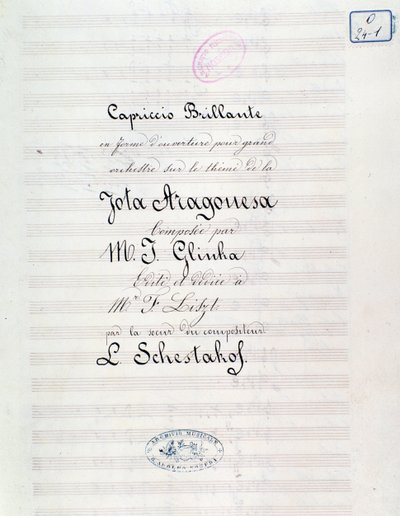 O
24-1
Capriccio Brillante
en forme d'ouverture pour grand
orchestre sur le thème de la
Jota Aragonesa
Composée par
M. J. Glinka
Edité et dédiié à
Mr F. Liszt
par la soeur du compositeur
L. Schestakof.
ARCHIVIO MUSICALE